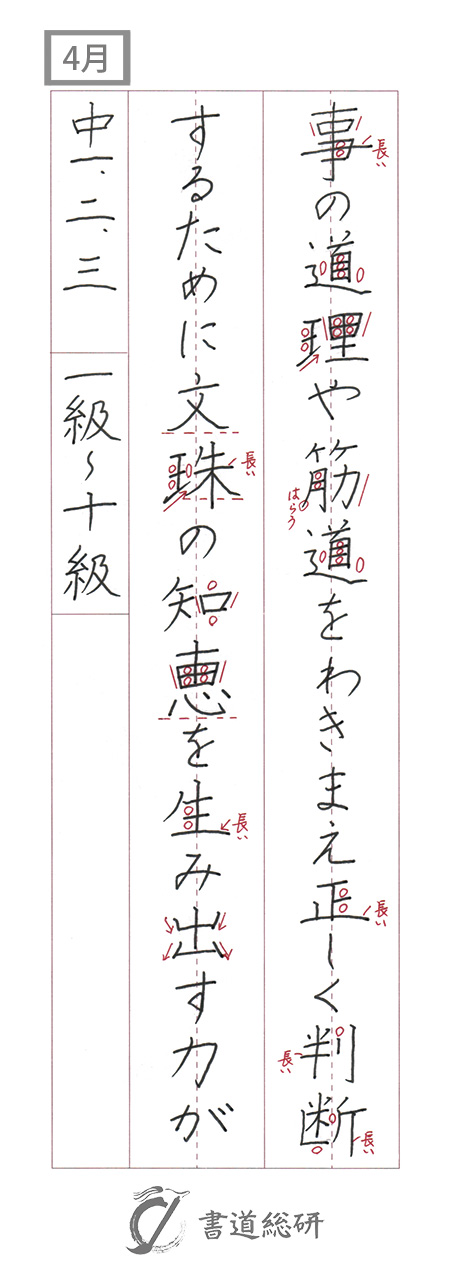 4月
事の道理や筋道をわきまえ正しく判断
するために文珠の知恵を生み出す力が
中一、二、三
一級〜十級
長い
はらう
長い
長い
長い
長い
長い
書道総研